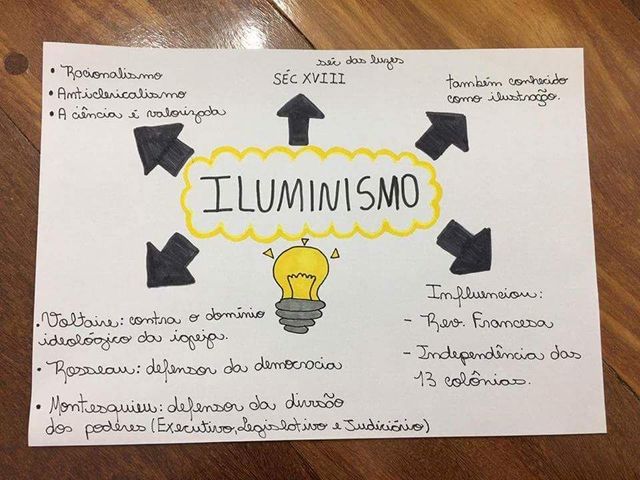 • Racionalismo
• Anticlericalismo
• A ciência é valorizada
séc das luzes
SÉC XVIII
também conhecido
como ilustração.
ILUMINISMO
• Voltaire: contra o domínio
ideológico da igreja.
• Rosseau: defensor da democracia
• Montesquieu: defensor da divisão
dos poderes (Executivo, Legislativo e Judiciário)
Influenciou:
- Rev. Francesa
- Independência das
13 colônias.